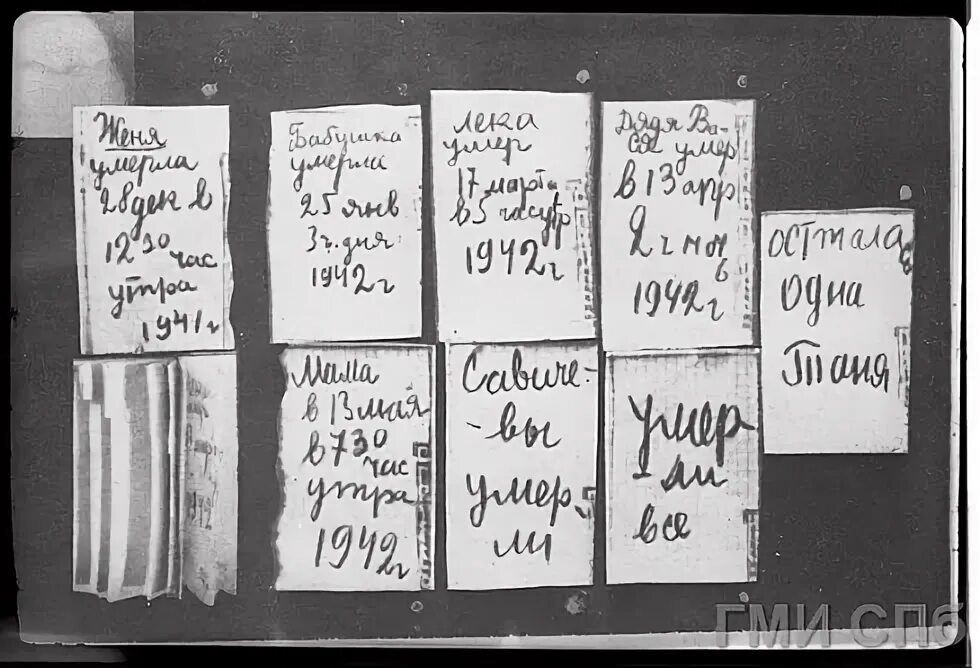 Женя
умерла
28 дек в
12 30 час
утра
1941 г
Бабушка
умерла
25 янв
3 ч. дня
1942 г
Лека
умер
17 марта
в 5 час утр
1942 г
Дядя Ва-
ся умер
в 13 апр
2 ч ноч
1942 г
Мама
в 13 мая
в 7 30
час
утра
1942 г
Савиче-
-вы
умер
ли
умер
-ли
все
осталась
одна
Таня
ГМИ СПб